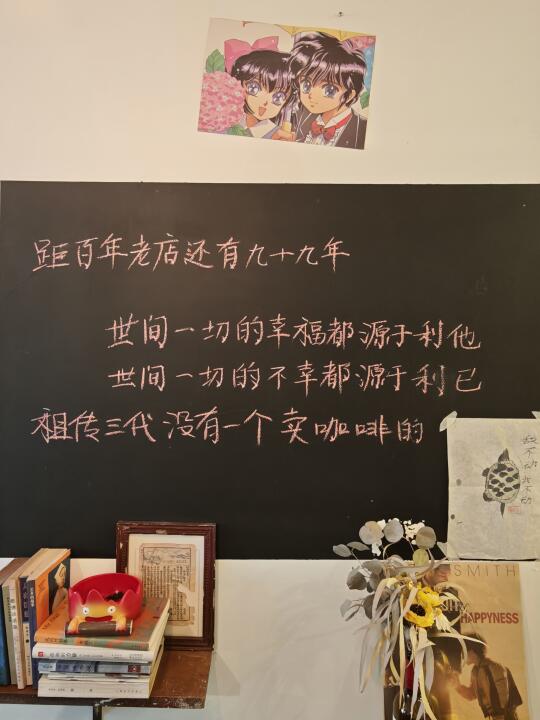 距百年老店还有九十九年
世间一切的幸福都源于利他
世间一切的不幸都源于利己
祖传三代没有一个卖咖啡的
敌不动
我不动
SMITH
HAPPYNESS